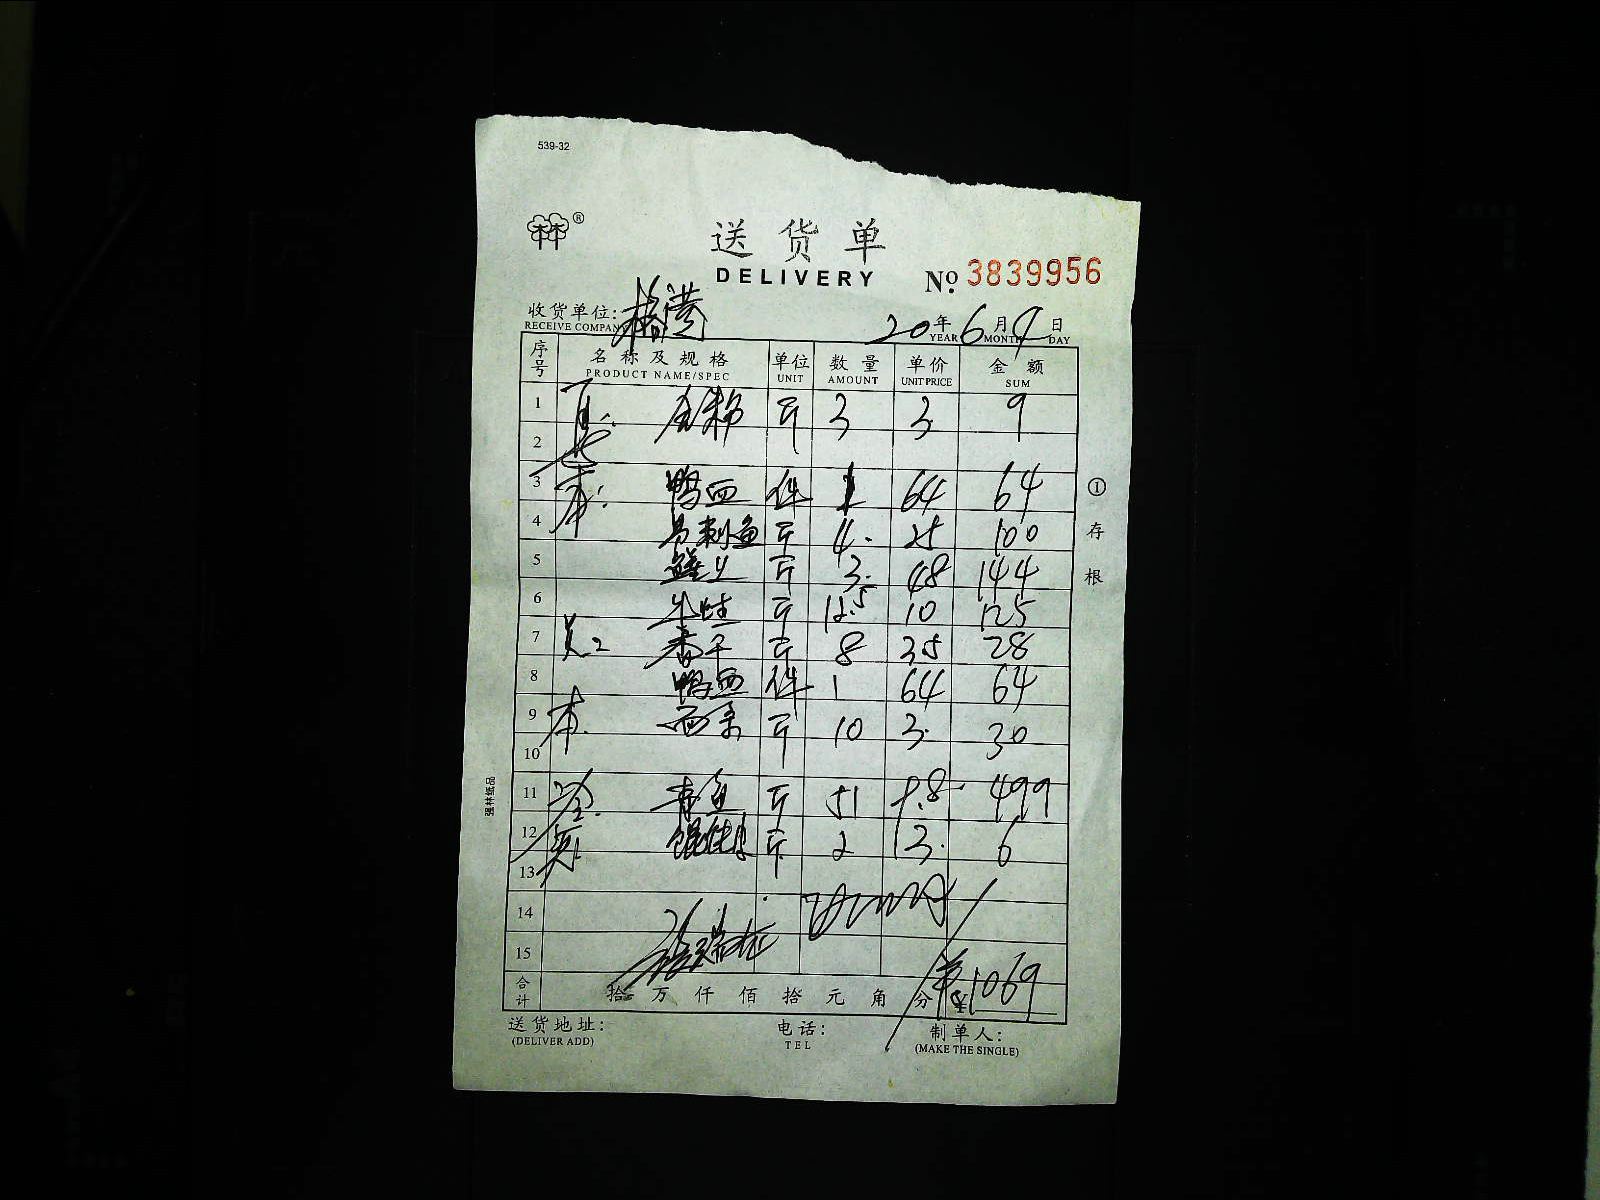 539-32
®
送货单
DELIVERY
Nº 3839956
收货单位:
RECEIVE COMPANY
20年6月9日
YEAR MONTH DAY
序号 名称及规格 单位 数量 单价 金额
PRODUCT NAME/SPEC UNIT AMOUNT UNIT PRICE SUM
1 斤 3 3 9
2
3 本: 鸭血 件 1 64 64
4 马刺鱼 斤 4 25 100
5 斤 3 48 144
6 牛蛙 斤 12.5 10 125
7 香干 斤 8 35 28
8 鸭血 件 1 64 64
9 本. 斤 10 3 30
10
11 青鱼 斤 51 9.8 499
12 馄饨皮 斤 2 3 6
13
14
15
合计 拾 万 仟 佰 拾 元 角 分 ¥1069
①存根
强林纸品
送货地址:
(DELIVER ADD)
电话:
TEL
制单人:
(MAKE THE SINGLE)